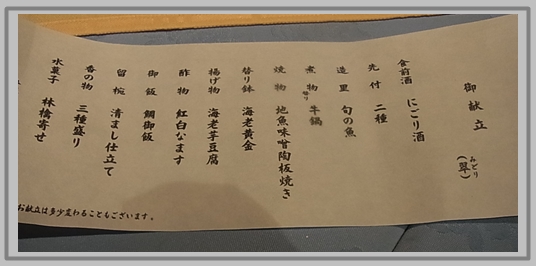 御献立
（翠）
みどり
食前酒 にごり酒
先付 二種
造里 旬の魚
煮物替り 牛鍋
焼物 地魚味噌陶板焼き
替り鉢 海老黄金
揚げ物 海老芋豆腐
酢物 紅白なます
御飯 鯛御飯
留椀 清まし仕立て
香の物 三種盛り
水菓子 林檎寄せ
お献立は多少変わることもございます。